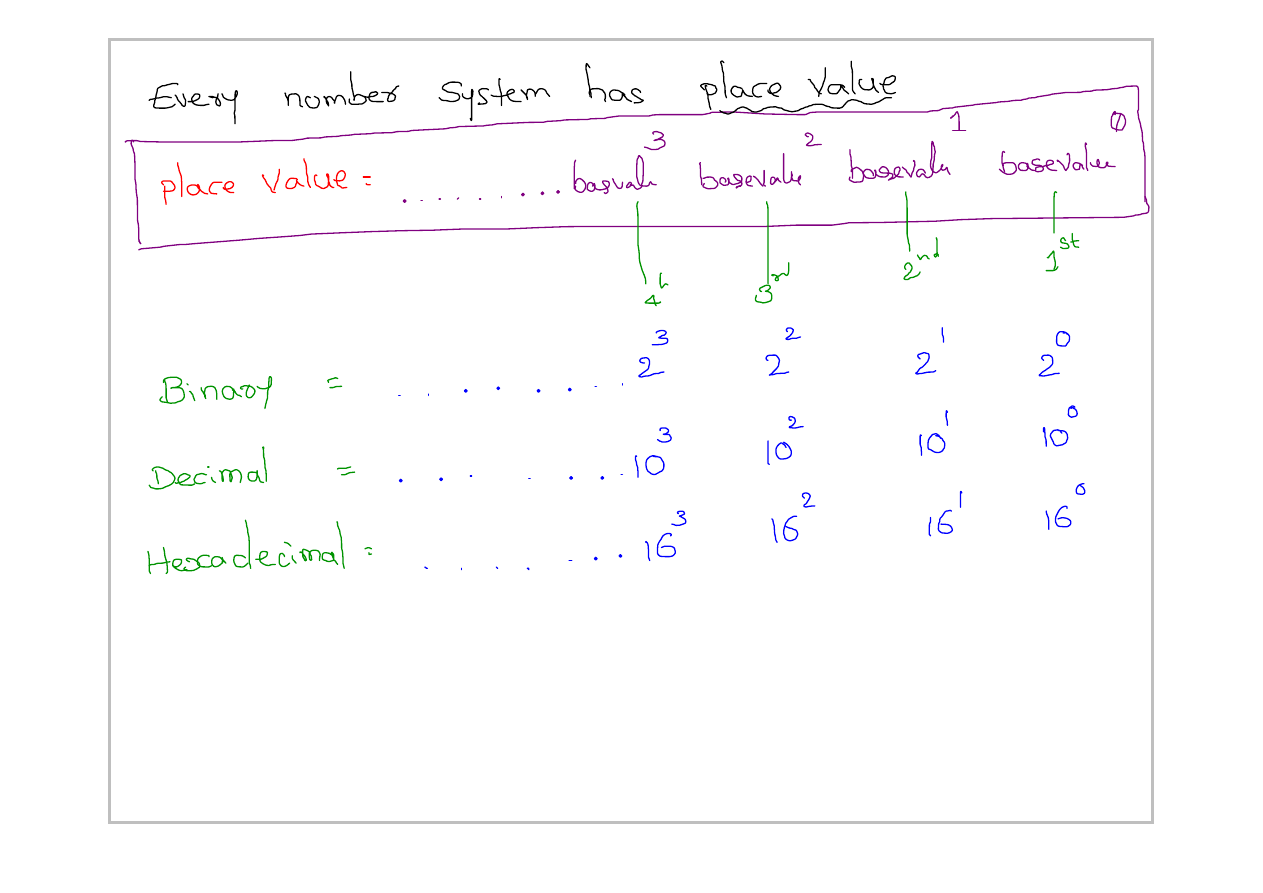 Every number System has place Value
place Value = ......... basvalu³ basevalue² basevalu¹ basevalue⁰
4th 3rd 2nd 1st
Binary = ........ 2³ 2² 2¹ 2⁰
Decimal = ....... 10³ 10² 10¹ 10⁰
Hexadecimal = ....... 16³ 16² 16¹ 16⁰